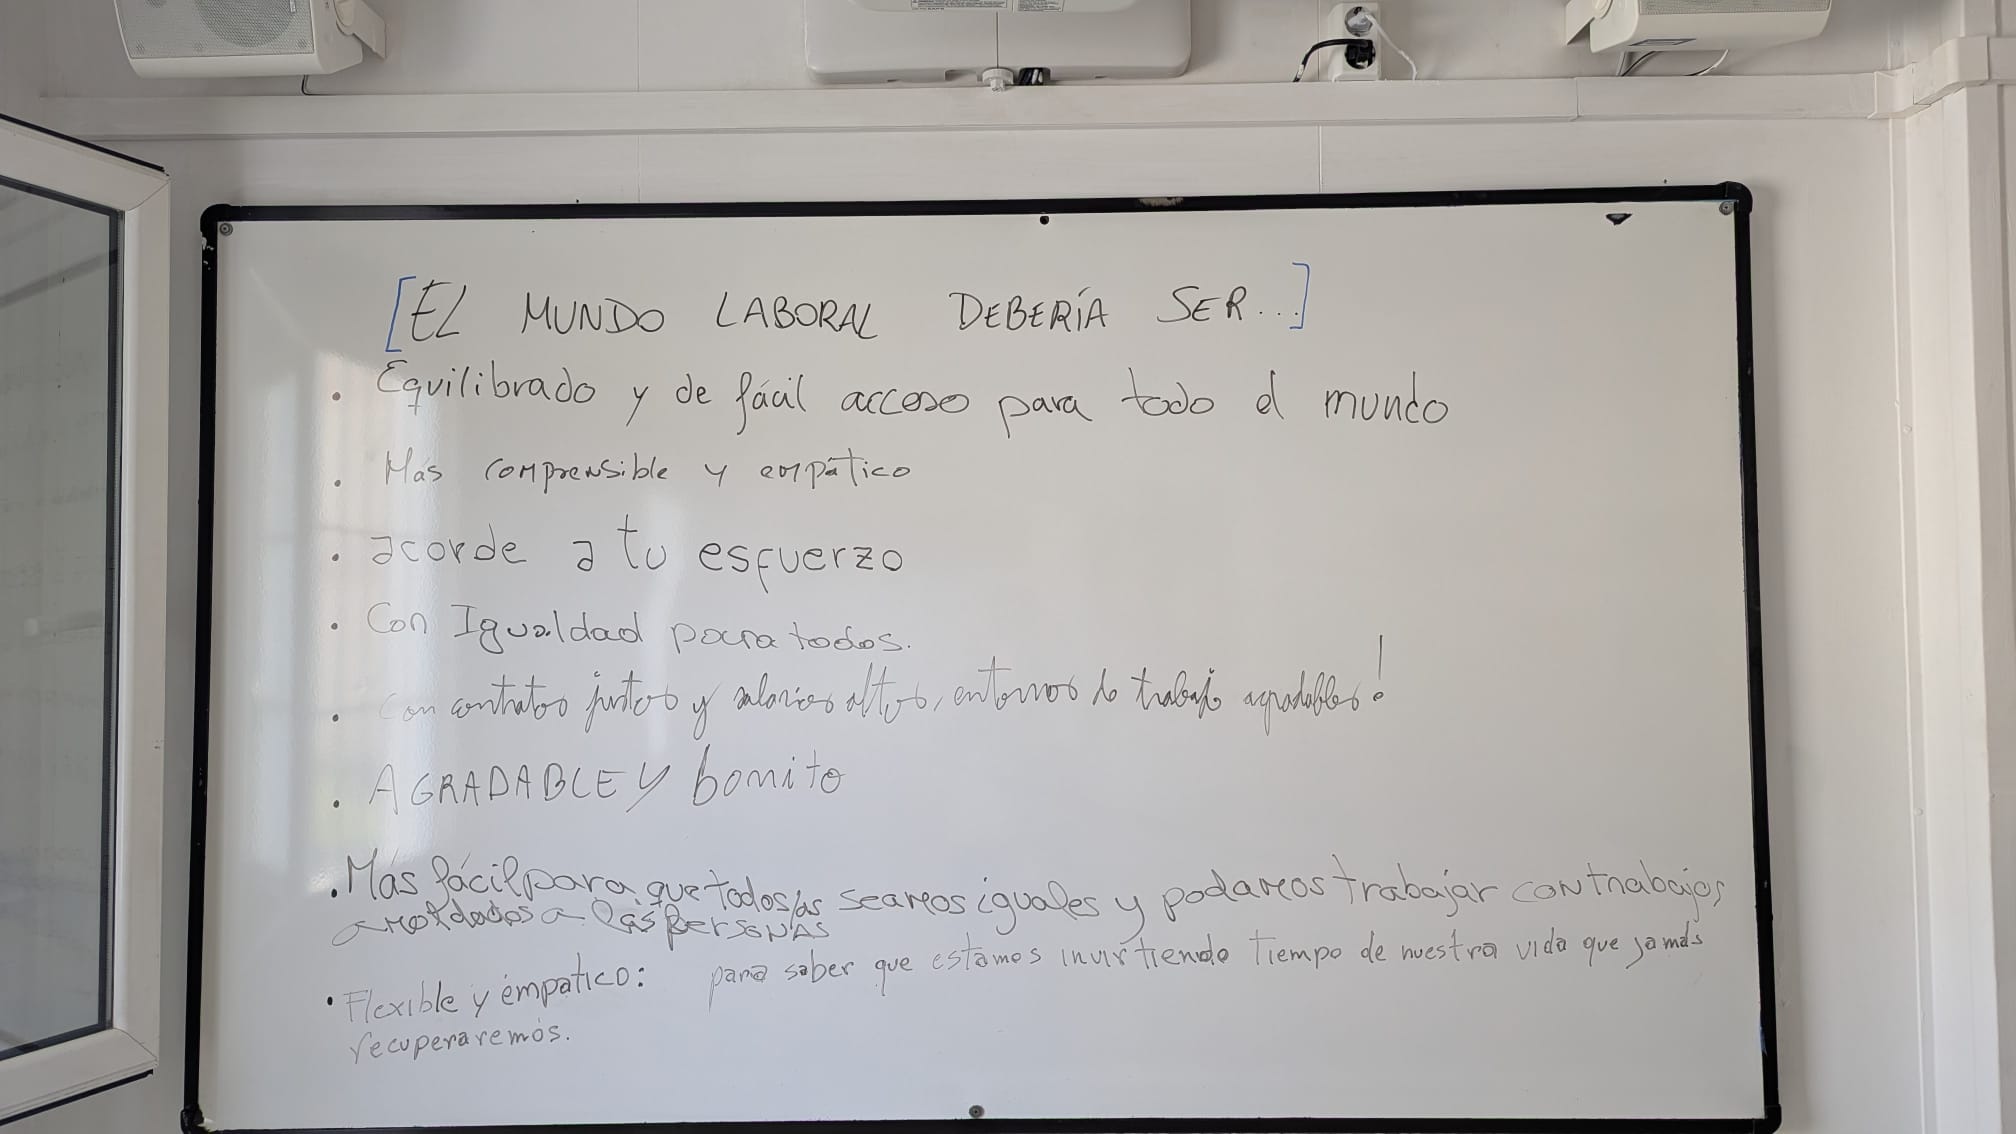 [EL MUNDO LABORAL DEBERÍA SER...]
• Equilibrado y de fácil acceso para todo el mundo
• Más comprensible y empático
• acorde a tu esfuerzo
• Con Igualdad para todos.
• Con contratos justos y salarios altos, entornos de trabajo agradables!
• AGRADABLE y bonito
• Más fácil para que todos/as seamos iguales y podamos trabajar con trabajos
amoldados a las personas
• Flexible y empatico: para saber que estamos invirtiendo tiempo de nuestra vida que jamás
recuperaremos.